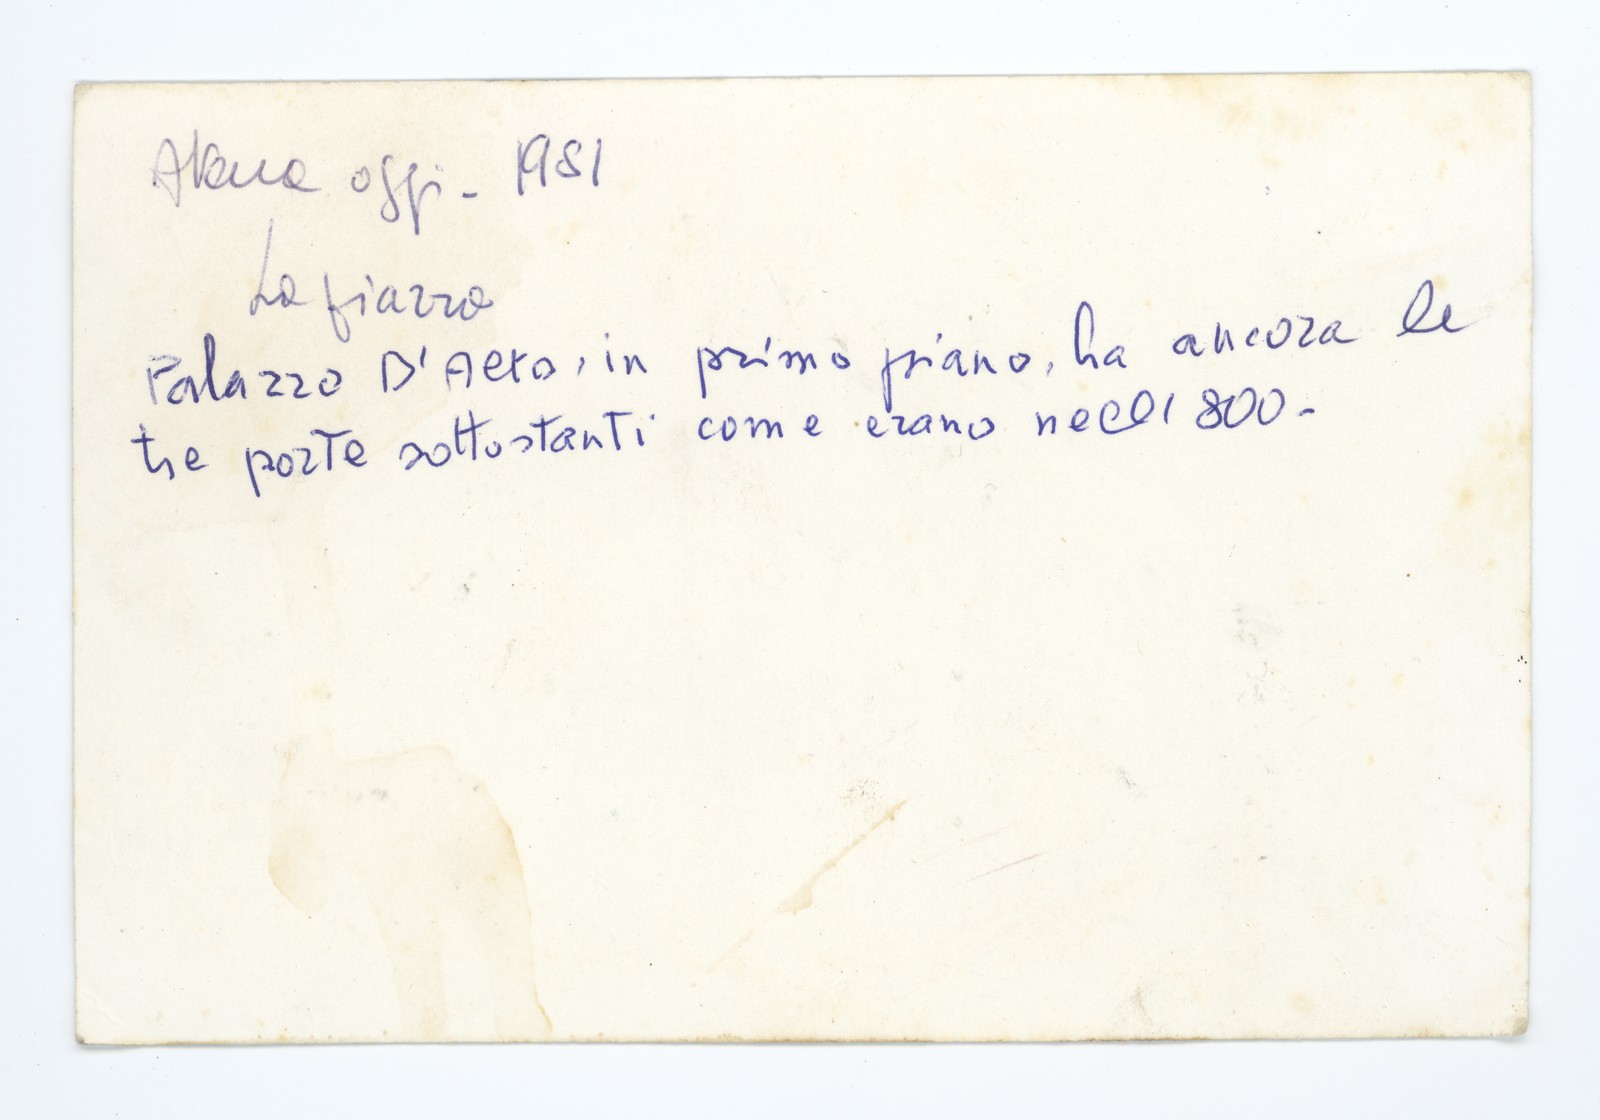 Atena oggi - 1981
La piazza
Palazzo D'Alto, in primo piano, ha ancora le
tre porte sottostanti come erano nell'800-